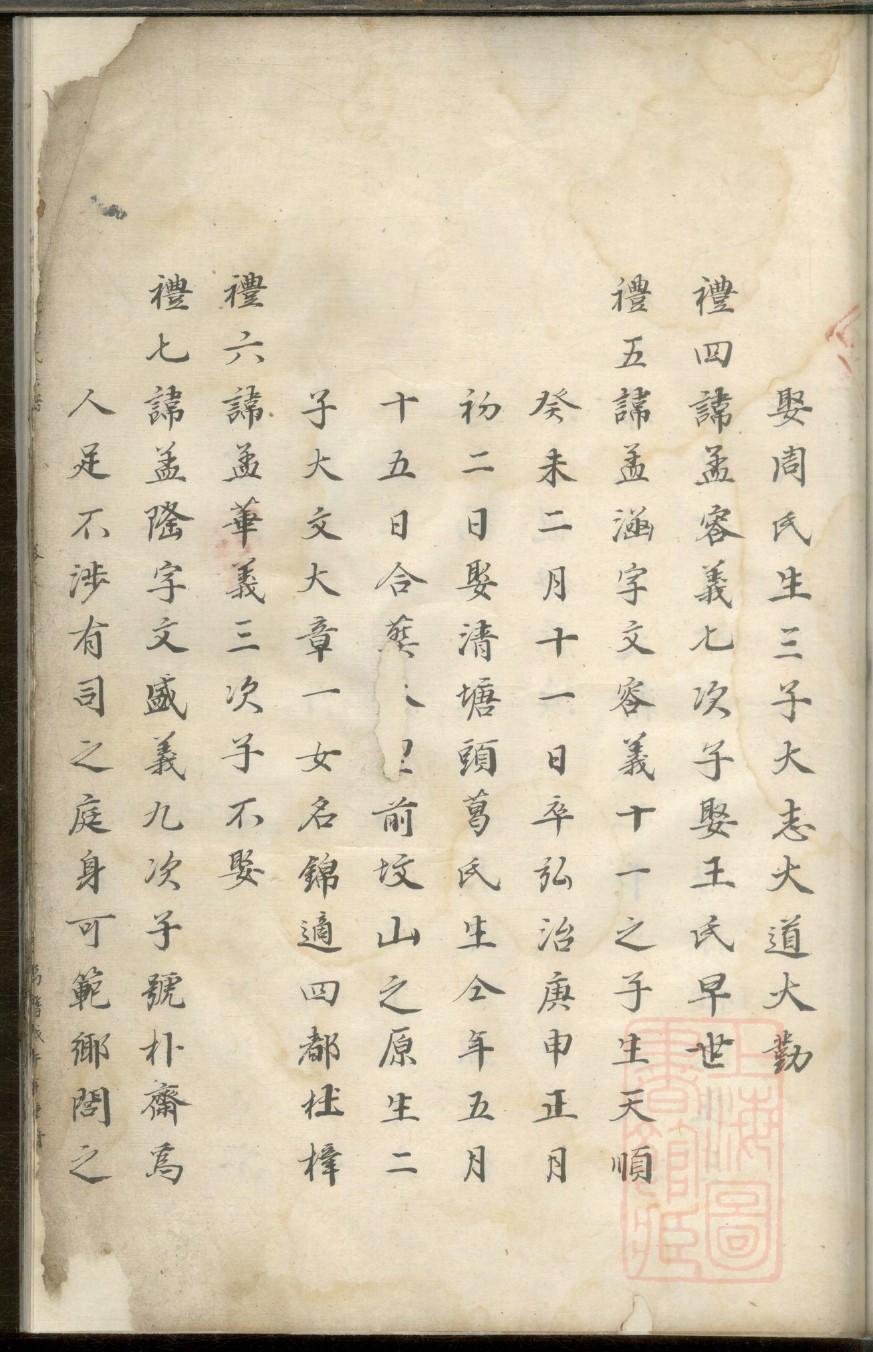 娶周氏生三子大志大道大勤
禮四諱孟容義七次子娶王氏早世
禮五諱孟涵字文容義十一之子生天順
癸未二月十一日卒弘治庚申正月
初二日娶清塘頭葛氏生仝年五月
十五日合龔前坟山之原生二
子大文大章一女名錦適四都杜樟
禮六諱孟華義三次子不娶
禮七諱孟隆字文盛義九次子號朴齋爲
人足不涉有司之庭身可範鄉閭之
上海圖書館藏